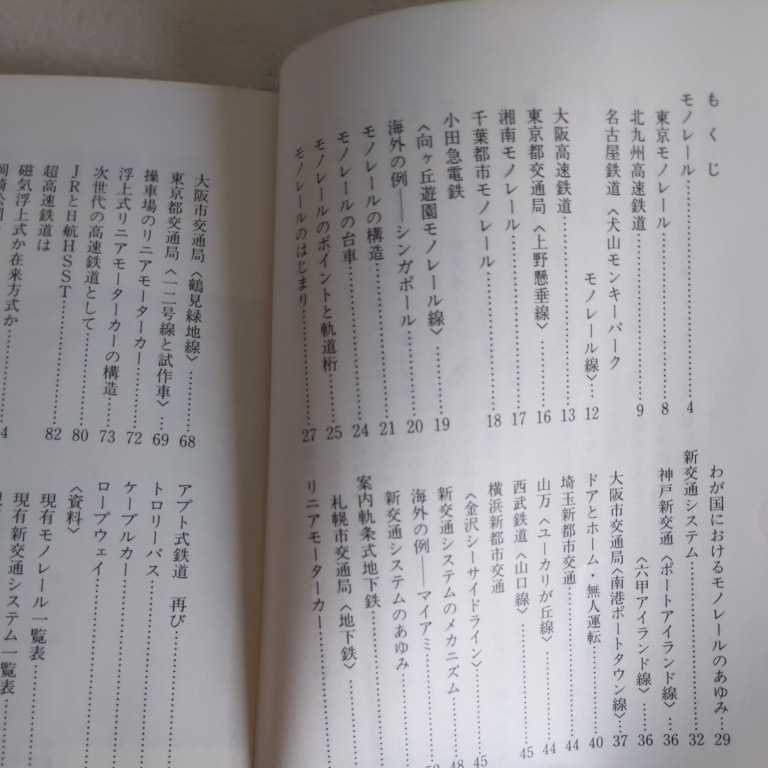 もくじ
モノレール……4
東京モノレール……8
北九州高速鉄道……9
名古屋鉄道〈犬山モンキーパーク
モノレール線〉……12
大阪高速鉄道……13
東京都交通局〈上野懸垂線〉……16
湘南モノレール……17
千葉都市モノレール……18
小田急電鉄
〈向ヶ丘遊園モノレール線〉……19
海外の例――シンガポール……20
モノレールの構造……21
モノレールの台車……24
モノレールのポイントと軌道桁……25
モノレールのはじまり……27
わが国におけるモノレールのあゆみ……29
新交通システム……32
神戸新交通〈ポートアイランド線〉……36
〈六甲アイランド線〉……36
大阪市交通局〈南港ポートタウン線〉……37
ドアとホーム・無人運転……40
埼玉新都市交通……44
山万〈ユーカリが丘線〉……44
西武鉄道〈山口線〉……45
横浜新都市交通
〈金沢シーサイドライン〉……45
新交通システムのメカニズム……48
海外の例――マイアミ……
新交通システムのあゆみ……
案内軌条式地下鉄……
札幌市交通局〈地下鉄〉……
リニアモーターカー……
大阪市交通局〈鶴見緑地線〉……68
東京都交通局〈一二号線と試作車〉……69
操車場のリニアモーターカー……72
浮上式リニアモーターカーの構造……73
次世代の高速鉄道として……80
JRと日航HSST……82
超高速鉄道は
磁気浮上式か在来方式か……4
アプト式鉄道 再び……
トロリーバス……
ケーブルカー……
ロープウェイ……
〈資料〉
現有モノレール一覧表……
現有新交通システム一覧表……